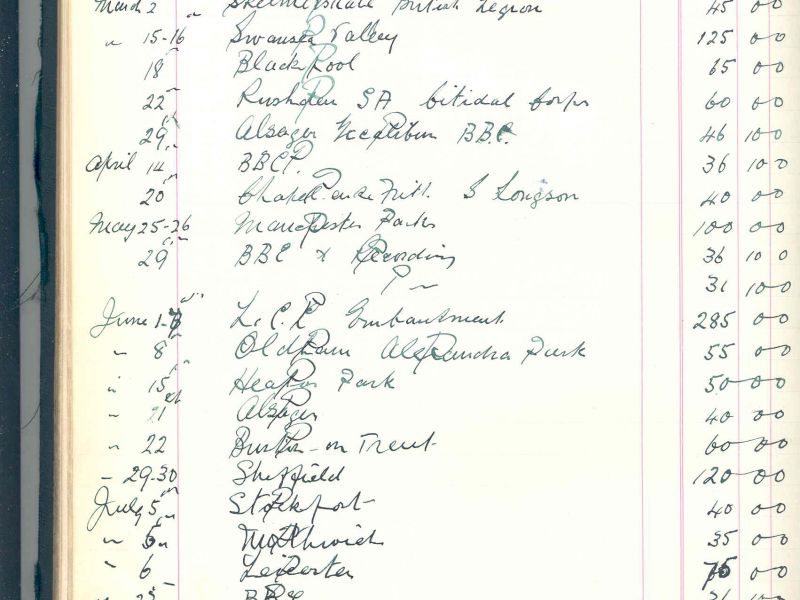 March 2 Skelmersdale British Legion 45 00
" 15-16 Swansea Valley 125 00
18 Blackpool 65 00
22 Rushden SA Citidal Corps 60 00
29 Alsager Reception BBC. 46 10 0
April 14 BBC. 36 10 0
20 Chapel-en-le-Frith. S Longson 40 00
May 25-26 Manchester Parks 100 00
29 BBC & Recording 36 10 0
31 10 0
June 1-8 L.C.C Embankment 285 00
" 8 Oldham Alexandra Park 55 00
" 15 Heaton Park 50 00
" 21 Alsager 40 00
" 22 Burton-on Trent 60 00
" 29-30 Sheffield 120 00
July 5 Stockport 40 00
" 5 Northwich 35 00
" 6 Leicester 75 00
BBC